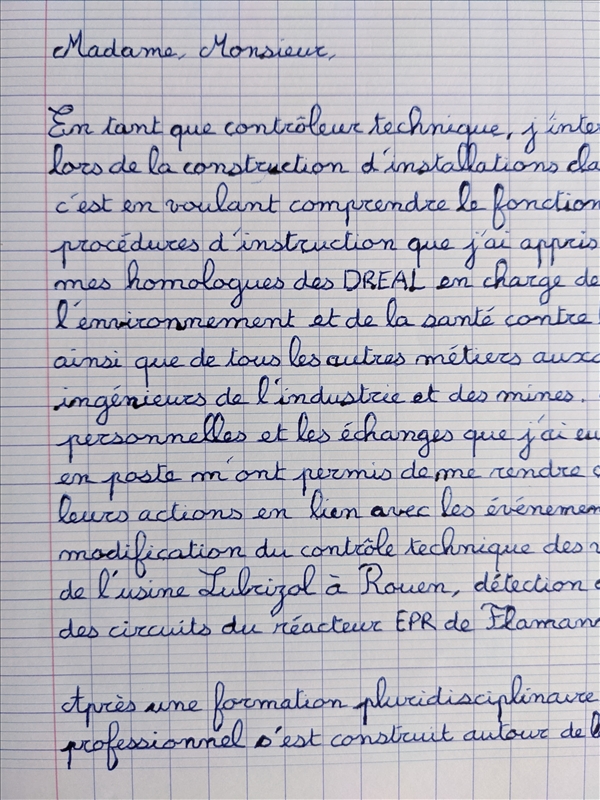 Madame, Monsieur,
En tant que contrôleur technique, j'inte
lors de la construction d'installations cla
c'est en voulant comprendre le fonction
procédures d'instruction que j'ai appris
mes homologues des DREAL en charge de
l'environnement et de la santé contre
ainsi que de tous les autres métiers auxq
ingénieurs de l'industrie et des mines.
personnelles et les échanges que j'ai eu
en poste m'ont permis de me rendre c
leurs actions en lien avec les événemen
modification du contrôle technique des v
de l'usine Lubrizol à Rouen, détection
des circuits du réacteur EPR de Flaman
Après une formation pluridisciplinaire
professionnel s'est construit autour de l